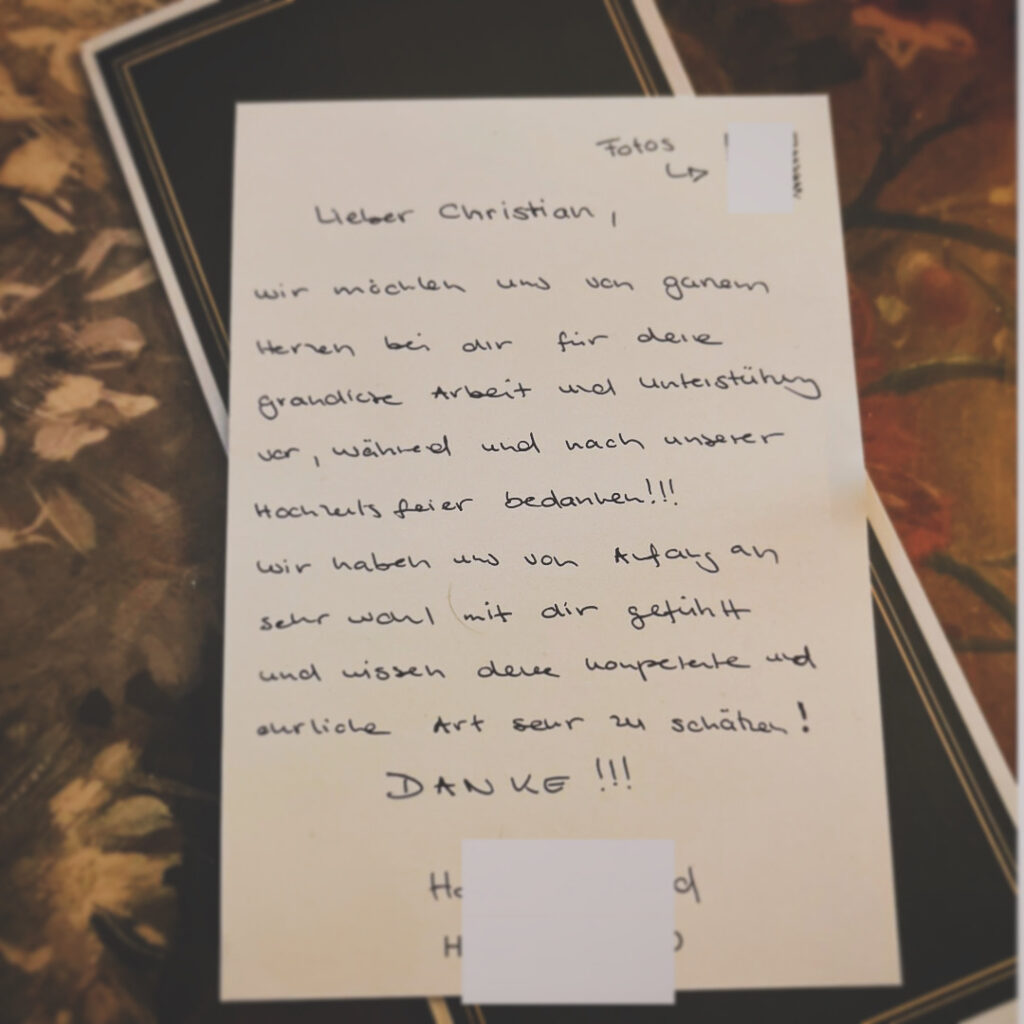 Fotos
Lieber Christian,
wir möchten uns von ganzem
Herzen bei dir für deine
grandiose Arbeit und Unterstützung
vor, während und nach unserer
Hochzeitsfeier bedanken!!!
Wir haben uns von Anfang an
sehr wohl mit dir gefühlt
und wissen deine kompetente und
ehrliche Art sehr zu schätzen!
DANKE!!!